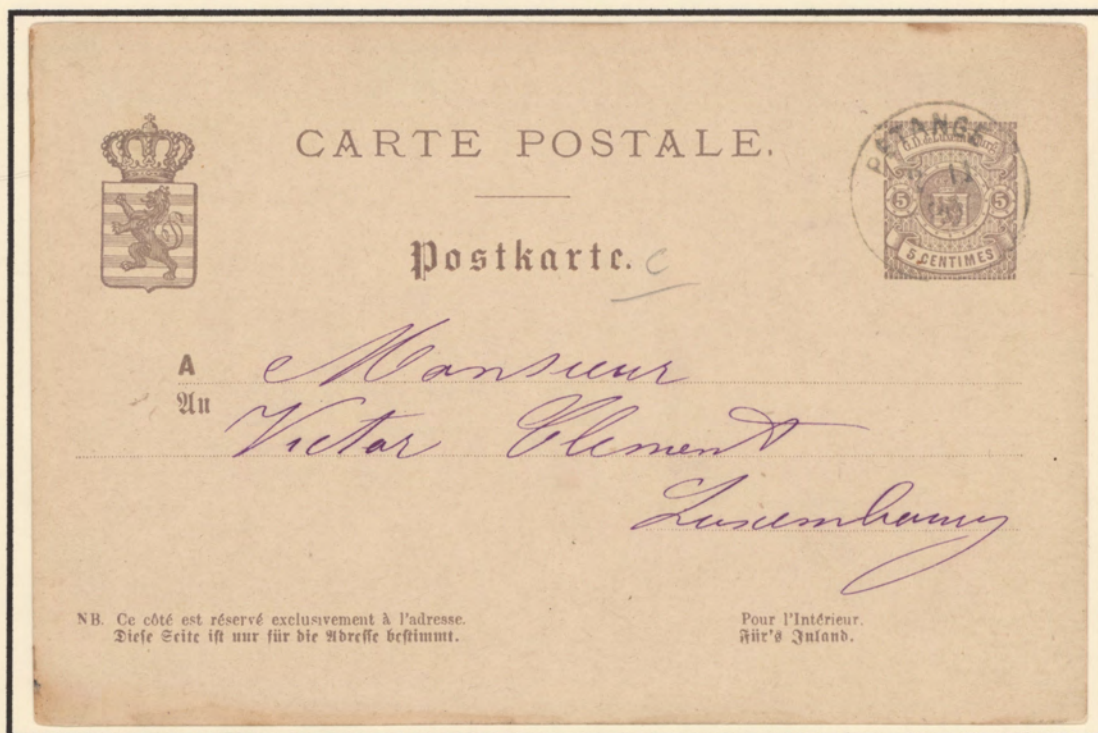 CARTE POSTALE.
PETANGE
G.D. de Luxembourg
5 5
5 CENTIMES
Postkarte. C
A Monsieur
An
Victor Clement
Luxembourg
NB. Ce côté est réservé exclusivement à l'adresse.
Diese Seite ist nur für die Adresse bestimmt.
Pour l'Intérieur.
Für's Inland.